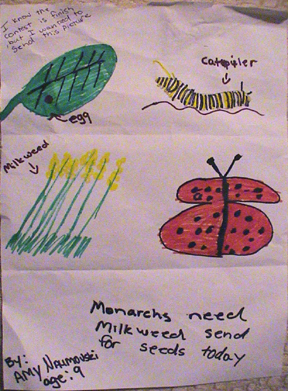 I know the
contest is finish
but I wanted to
Send this picture
Catepiler
egg
Milkweed
Monarchs need
Milkweed send
for seeds today
By:
AMY Naumovski
age: 9